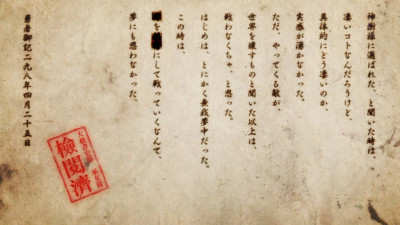 神樹様に選ばれた、と聞いた時は、
凄いコトなんだろうけど、
具体的にどう凄いのか、
実感が湧かなかった。
ただ、やってくる敵が、
世界を壊すものと聞いた以上は、
戦わなくちゃ、と思った。
はじめは、とにかく無我夢中だった。
この時は、
を
にして戦っていくなんて、
夢にも思わなかった。
勇者御記二九八年四月二十五日
大赦書史部
検閲済